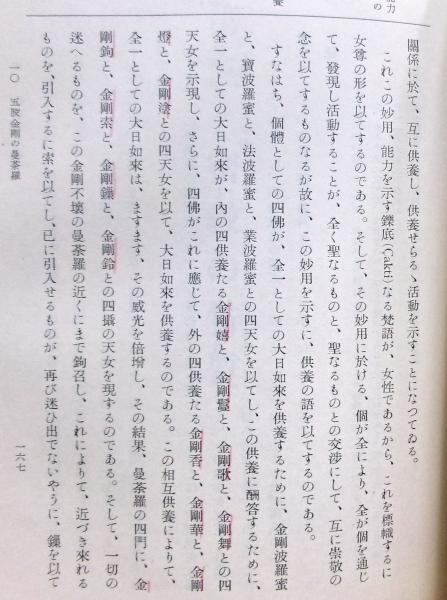 能力
の
養
關係に於て、互に供養し、供養せらるゝ活動を示すことになつてゐる。
これこの妙用、能力を示す鑠底(Çakti)なる梵語が、女性であるから、これを標幟するに
女尊の形を以てするのである。そして、その妙用に於ける、個が全により、全が個を通じ
て、發現し活動することが、全く聖なるものと、聖なるものとの交渉にして、互に崇敬の
念を以てするものなるが故に、この妙用を示すに、供養の語を以てするのである。
すなはち、個體としての四佛が、全一としての大日如來を供養するために、金剛波羅蜜
と、寶波羅蜜と、法波羅蜜と、業波羅蜜との四天女を以てし、この供養に酬答するために、
全一としての大日如來が、內の四供養たる金剛嬉と、金剛鬘と、金剛歌と、金剛舞との四
天女を示現し、さらに、四佛がこれに應じて、外の四供養たる金剛香と、金剛華と、金剛
燈と、金剛塗との四天女を以て、大日如來を供養するのである。この相互供養によりて、
全一としての大日如來は、ますます、その威光を倍增し、その結果、曼荼羅の四門に、金
剛鉤と、金剛索と、金剛鏁と、金剛鈴との四攝の天女を現するのである。そして、一切の
迷へるものを、この金剛不壞の曼荼羅の近くにまで鉤召し、これによりて、近づき來れる
ものを、引入するに索を以てし、已に引入せるものが、再び迷ひ出でないやうに、鏁を以て
一〇 五股金剛の曼荼羅
一六七